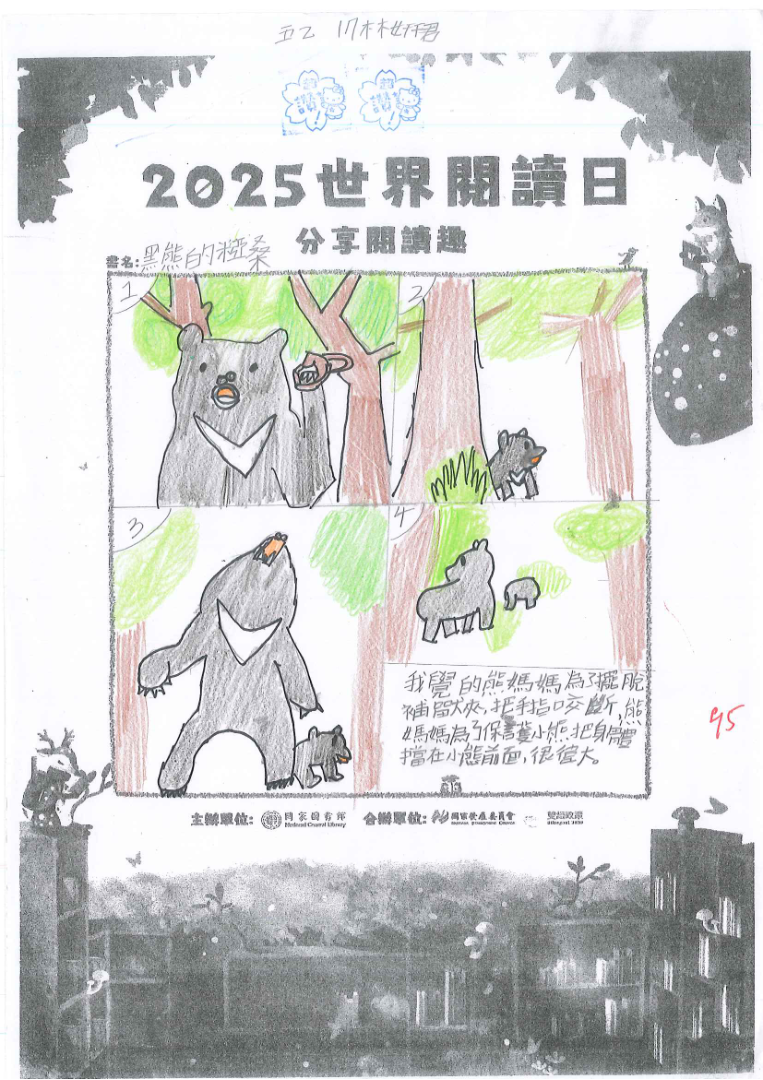 五乙 17林妤君
2025世界閱讀日
分享閱讀趣
書名:黑熊的粧桑
1
2
3
4
我覺的熊媽媽為了擺脫
補獸夾,把手指咬斷,熊
媽媽為了保護小熊把身體
擋在小熊前面,很偉大。
95
主辦單位: 國家圖書館 National Central Library 合辦單位: 國家發展委員會 National Development Council 雙語政策 Bilingual 2030